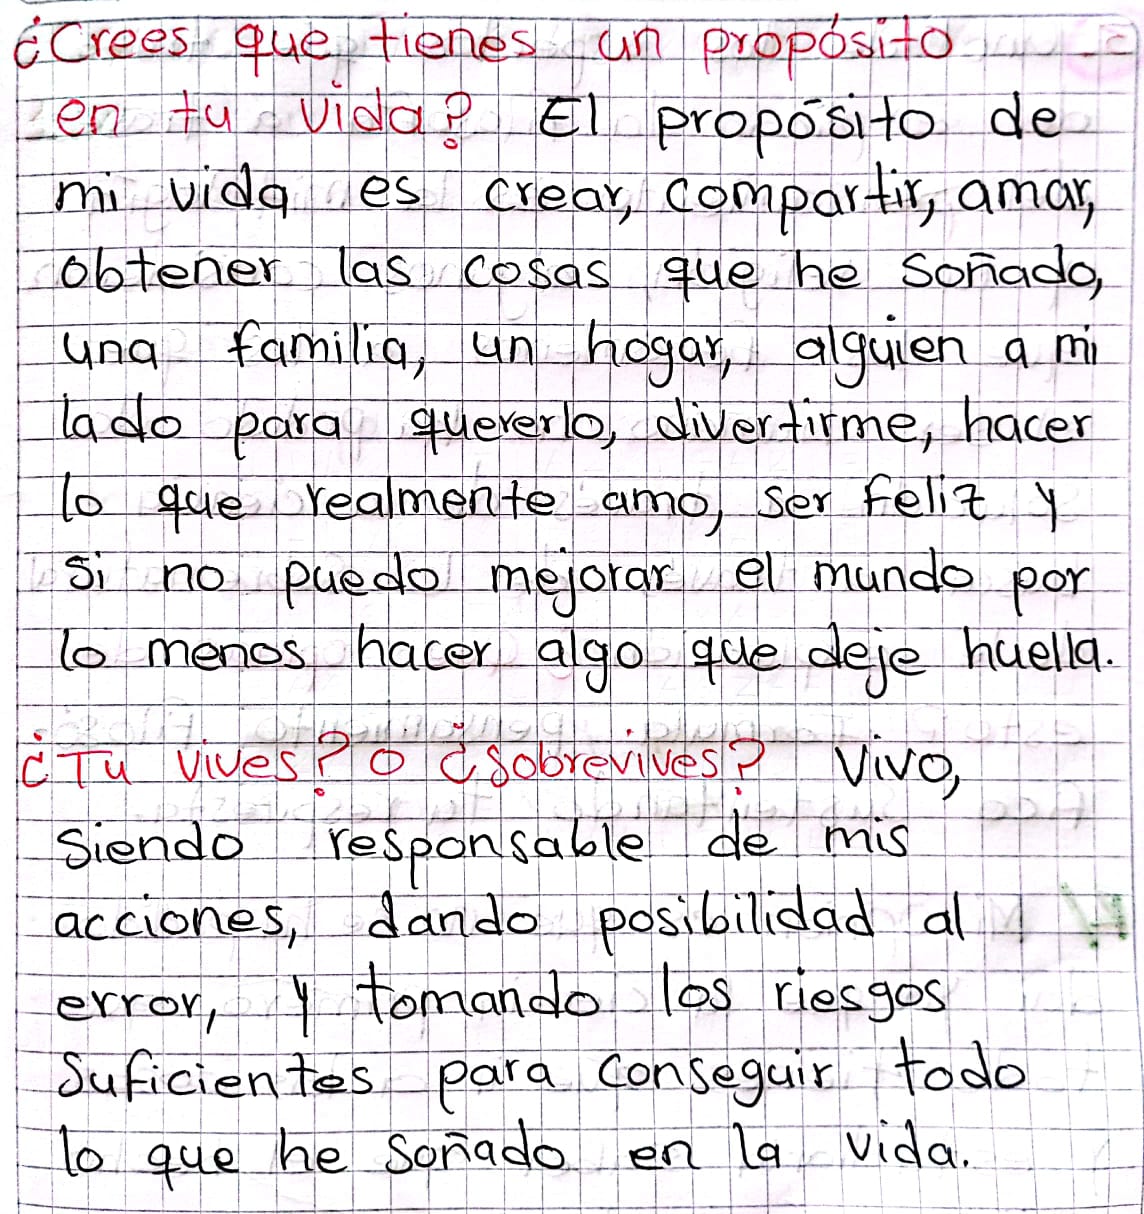 ¿Crees que tienes un propósito
en tu vida? El propósito de
mi vida es crear, compartir, amar,
obtener las cosas que he soñado,
una familia, un hogar, alguien a mi
lado para quererlo, divertirme, hacer
lo que realmente amo, ser feliz y
si no puedo mejorar el mundo por
lo menos hacer algo que deje huella.
¿Tu vives? O ¿Sobrevives? Vivo,
siendo responsable de mis
acciones, dando posibilidad al
error, y tomando los riesgos
suficientes para conseguir todo
lo que he soñado en la vida.